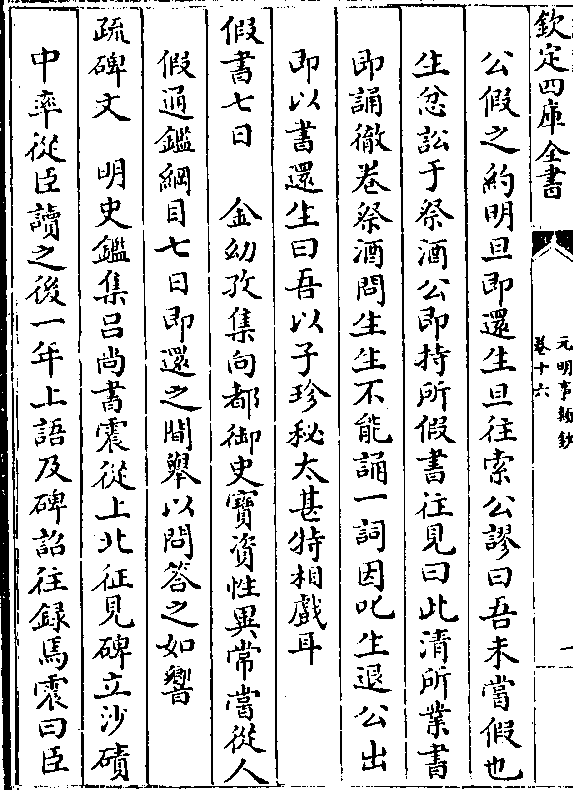 欽定四庫全書
元明事類鈔
卷十六
一
公假之約明旦即還生旦往索公謬曰吾未嘗假也
生忿訟于祭酒公即持所假書往見曰此清所業書
即誦徹卷祭酒問生生不能誦一詞因叱生退公出
即以書還生曰吾以子珍秘太甚特相戲耳
假書七日　金幼孜集向都御史寶資性異常嘗從人
假通鑑綱目七日即還之間舉以問答之如響
疏碑文　明史鑑集吕尚書震從上北征見碑立沙磧
中率從臣讀之後一年上語及碑詔往録焉震曰臣